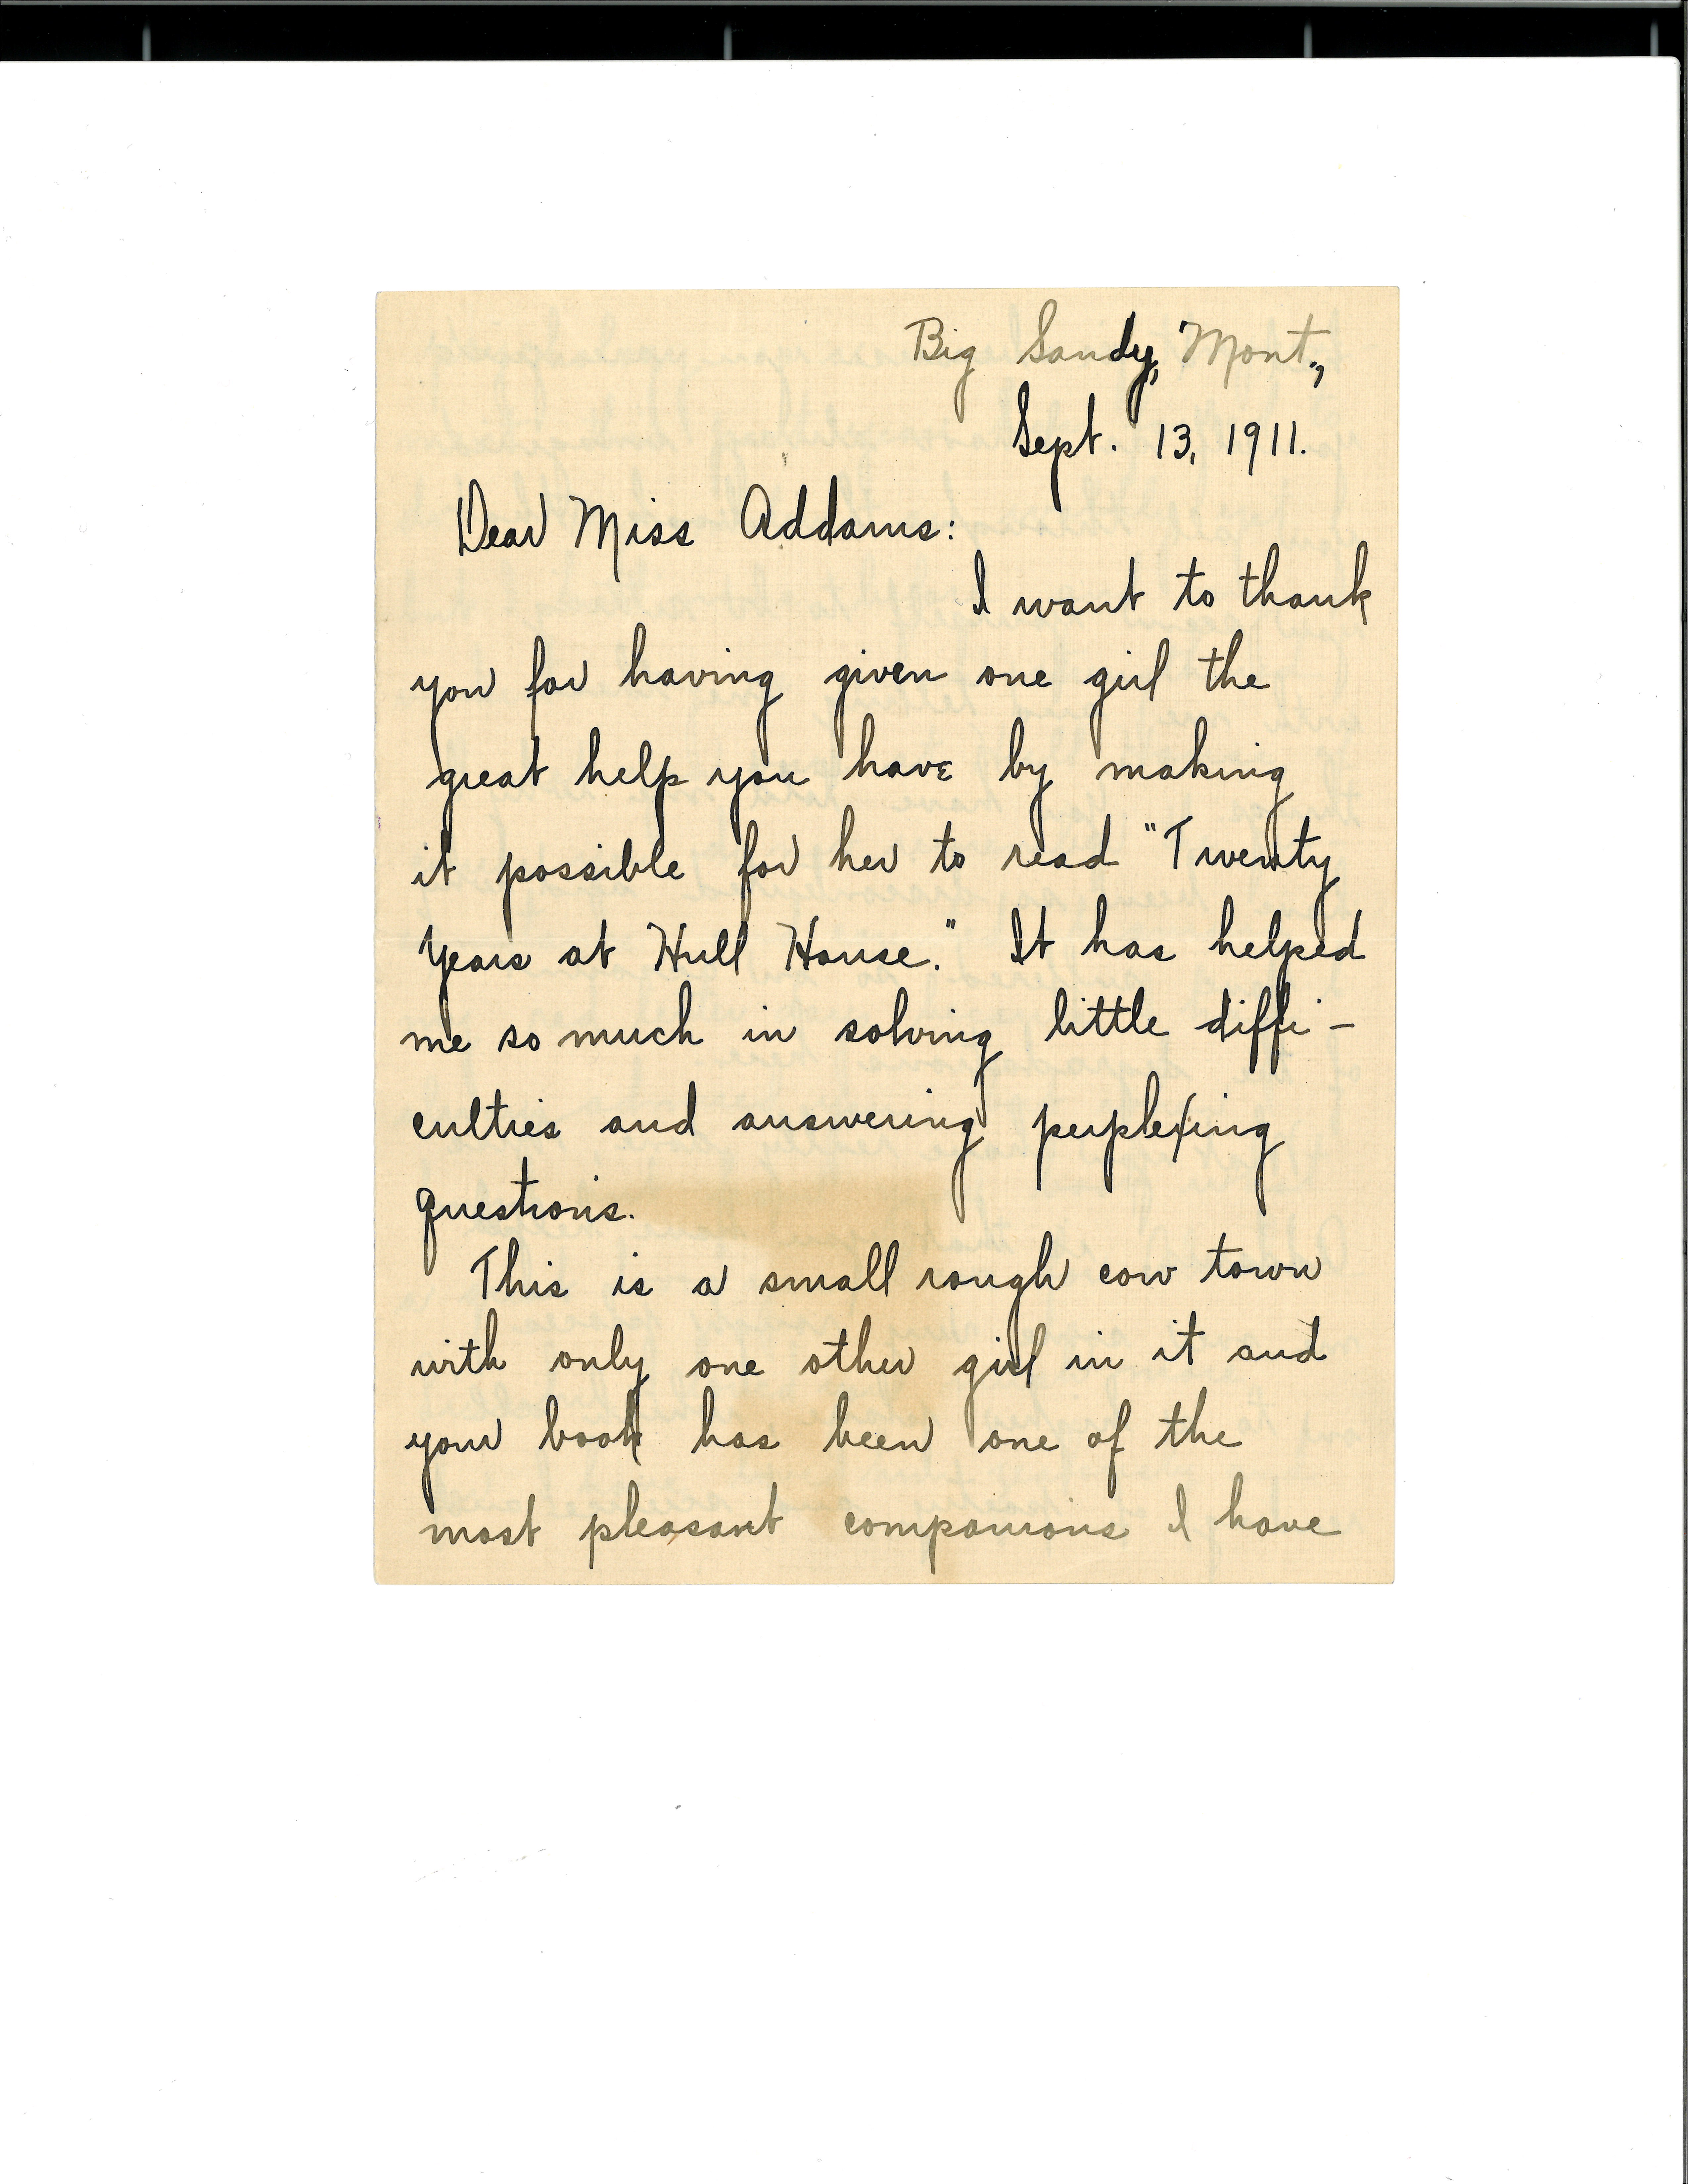 Big Sandy, Mont.,
Sept. 13, 1911.
Dear Miss Addams:
I want to thank
you for having given one girl the
great help you have by making
it possible for her to read "Twenty
Years at Hull House." It has helped
me so much in solving little diffi-
culties and answering perplexing
questions.
This is a small rough cow town
with only one other girl in it and
your book has been one of the
most pleasant companions I have